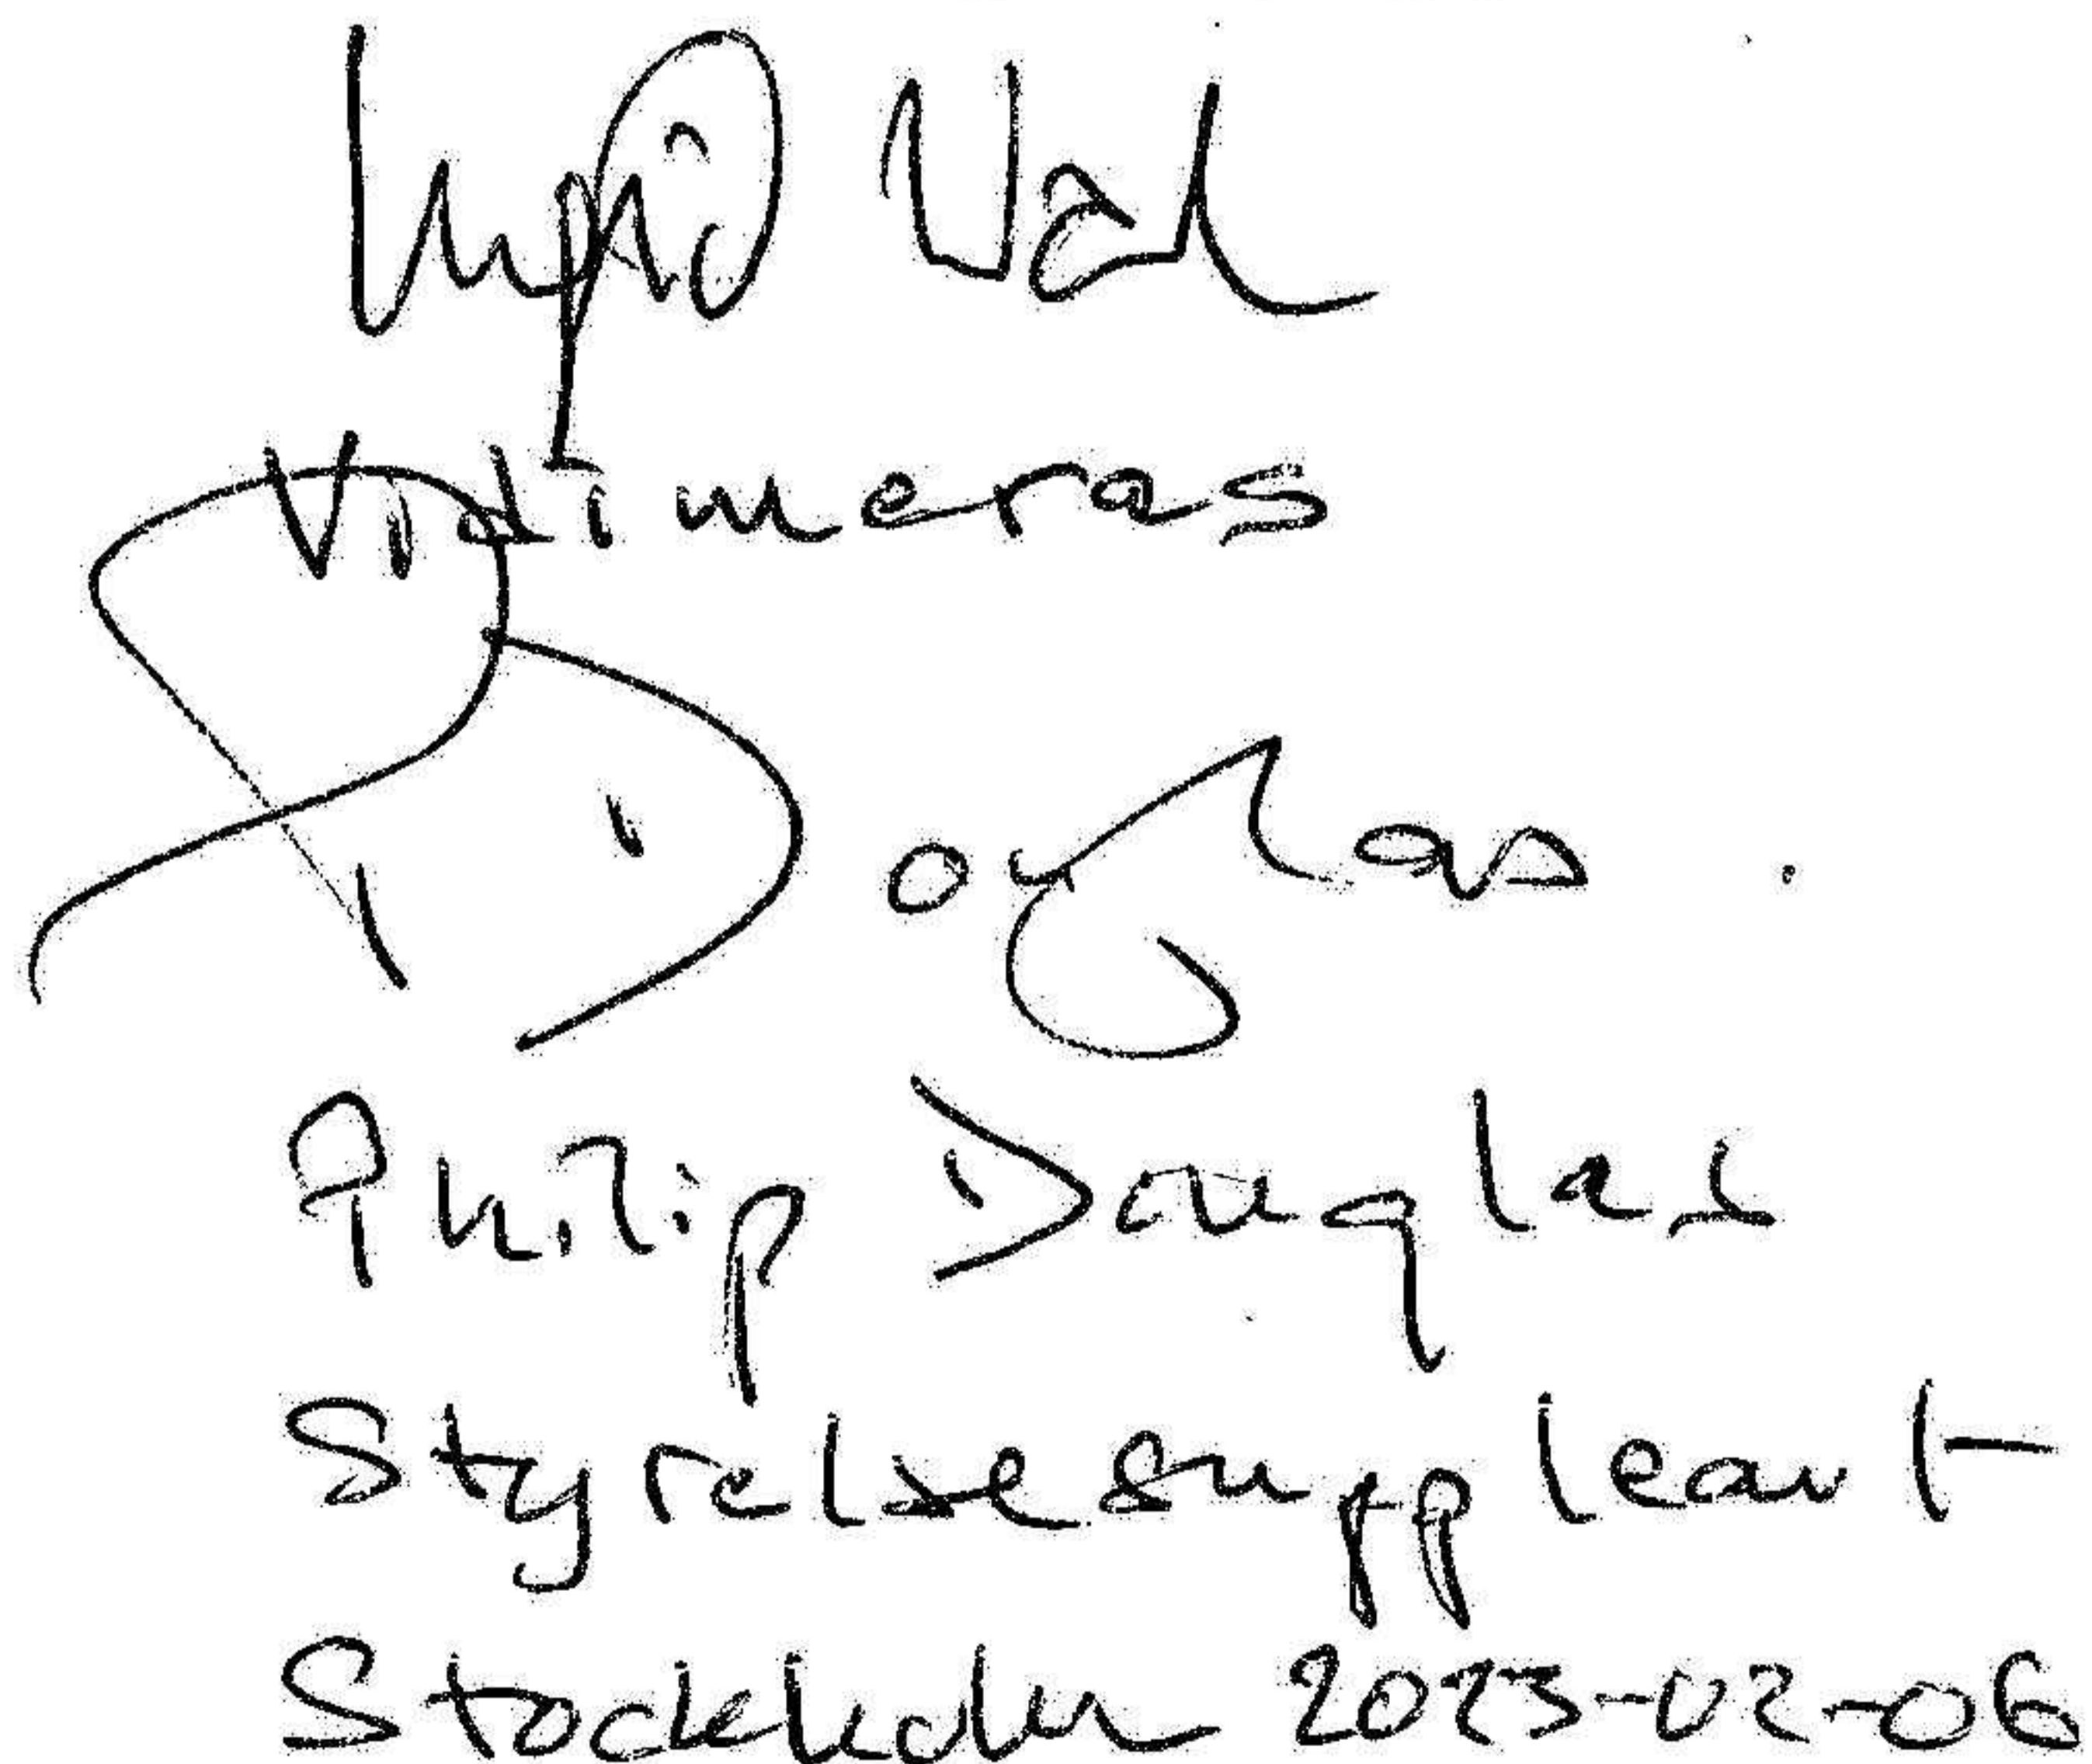 Vidimeras
Douglas
Philip Douglas
Styrelsesuppleant
Stockholm 2023-02-06